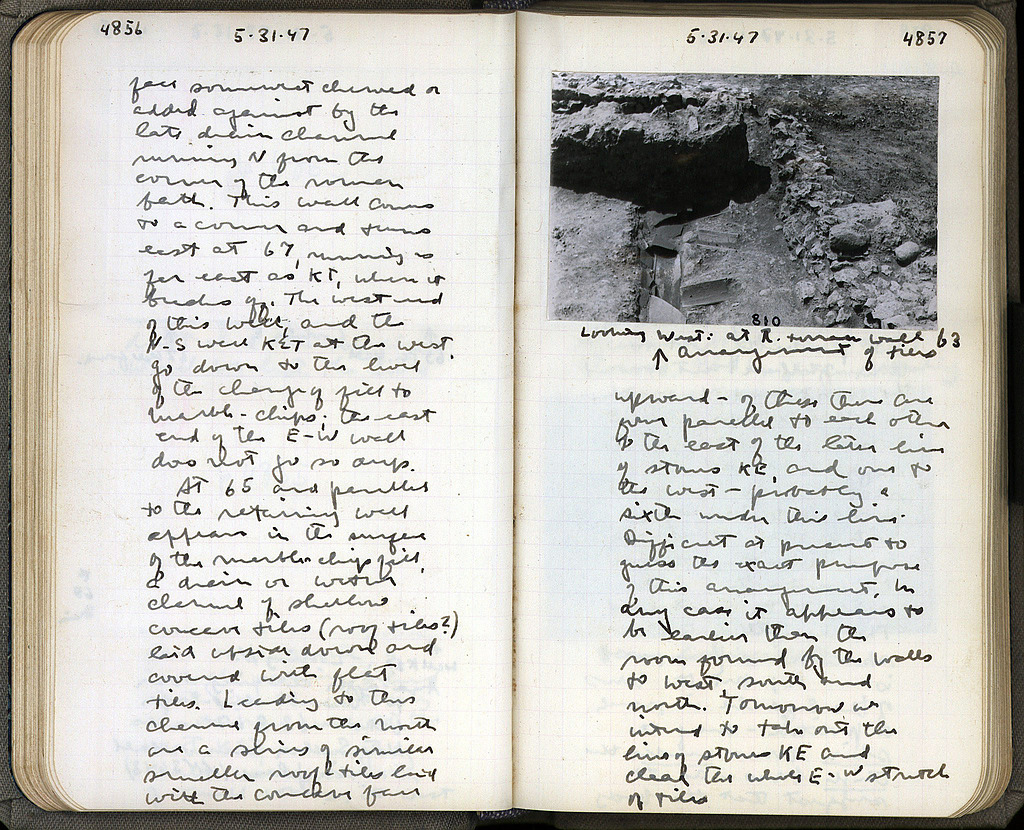 4856
5·31·47
face somewhat chewed or
added against by the
late drain channel
running N from the
corner of the roman
bath. This wall comes
to a corner and turns
east at 67, running as
far east as KT, where it
breaks off. The west end
of this wall, and the
N-S wall KET at the west,
go down to the level
of the change of fill to
marble-chips; the east
end of the E-W wall
does not go so deep.
At 65 and parallel
to the retaining wall
appears in the surface
of the marble-chip fill,
a drain or water
channel of shallow
concave tiles (roof tiles?)
laid upside down and
covered with flat
tiles. Leading to this
channel from the north
are a series of similar
smaller roof-tiles laid
with the concave face
5·31·47
4857
810
Looking West: at R. roman wall 63
↑ arrangement of tiles
upward – of these there are
four parallel to each other
to the east of the later line
of stones KE, and one to
the west – probably a
sixth under this line.
Difficult at present to
guess the exact purpose
of this arrangement. In
any case it appears to
be earlier than the
room formed by the walls
to west, south and
north. Tomorrow we
intend to take out the
line of stones KE and
clear the whole E-W stretch
of tiles